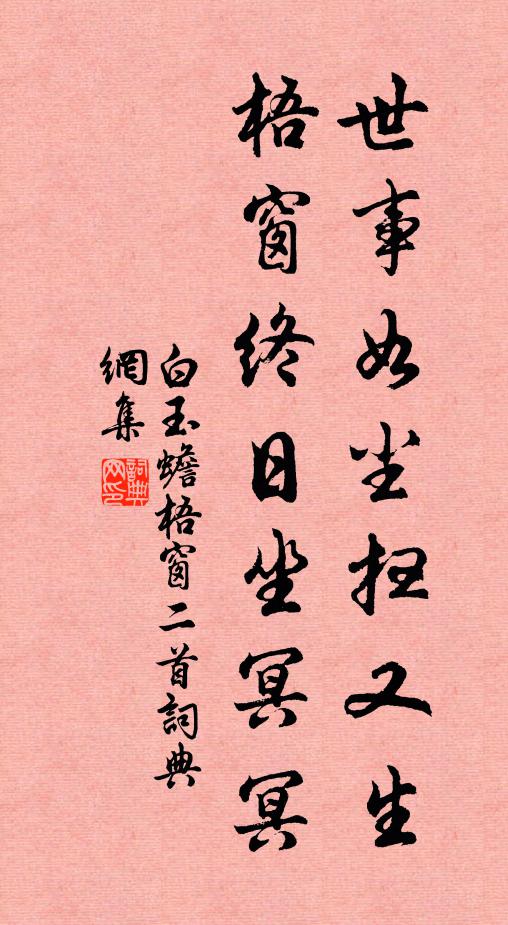 世事如尘扫又生
梧窗终日坐冥冥
白玉蟾梧窗二首詞典
網集
詞典网印